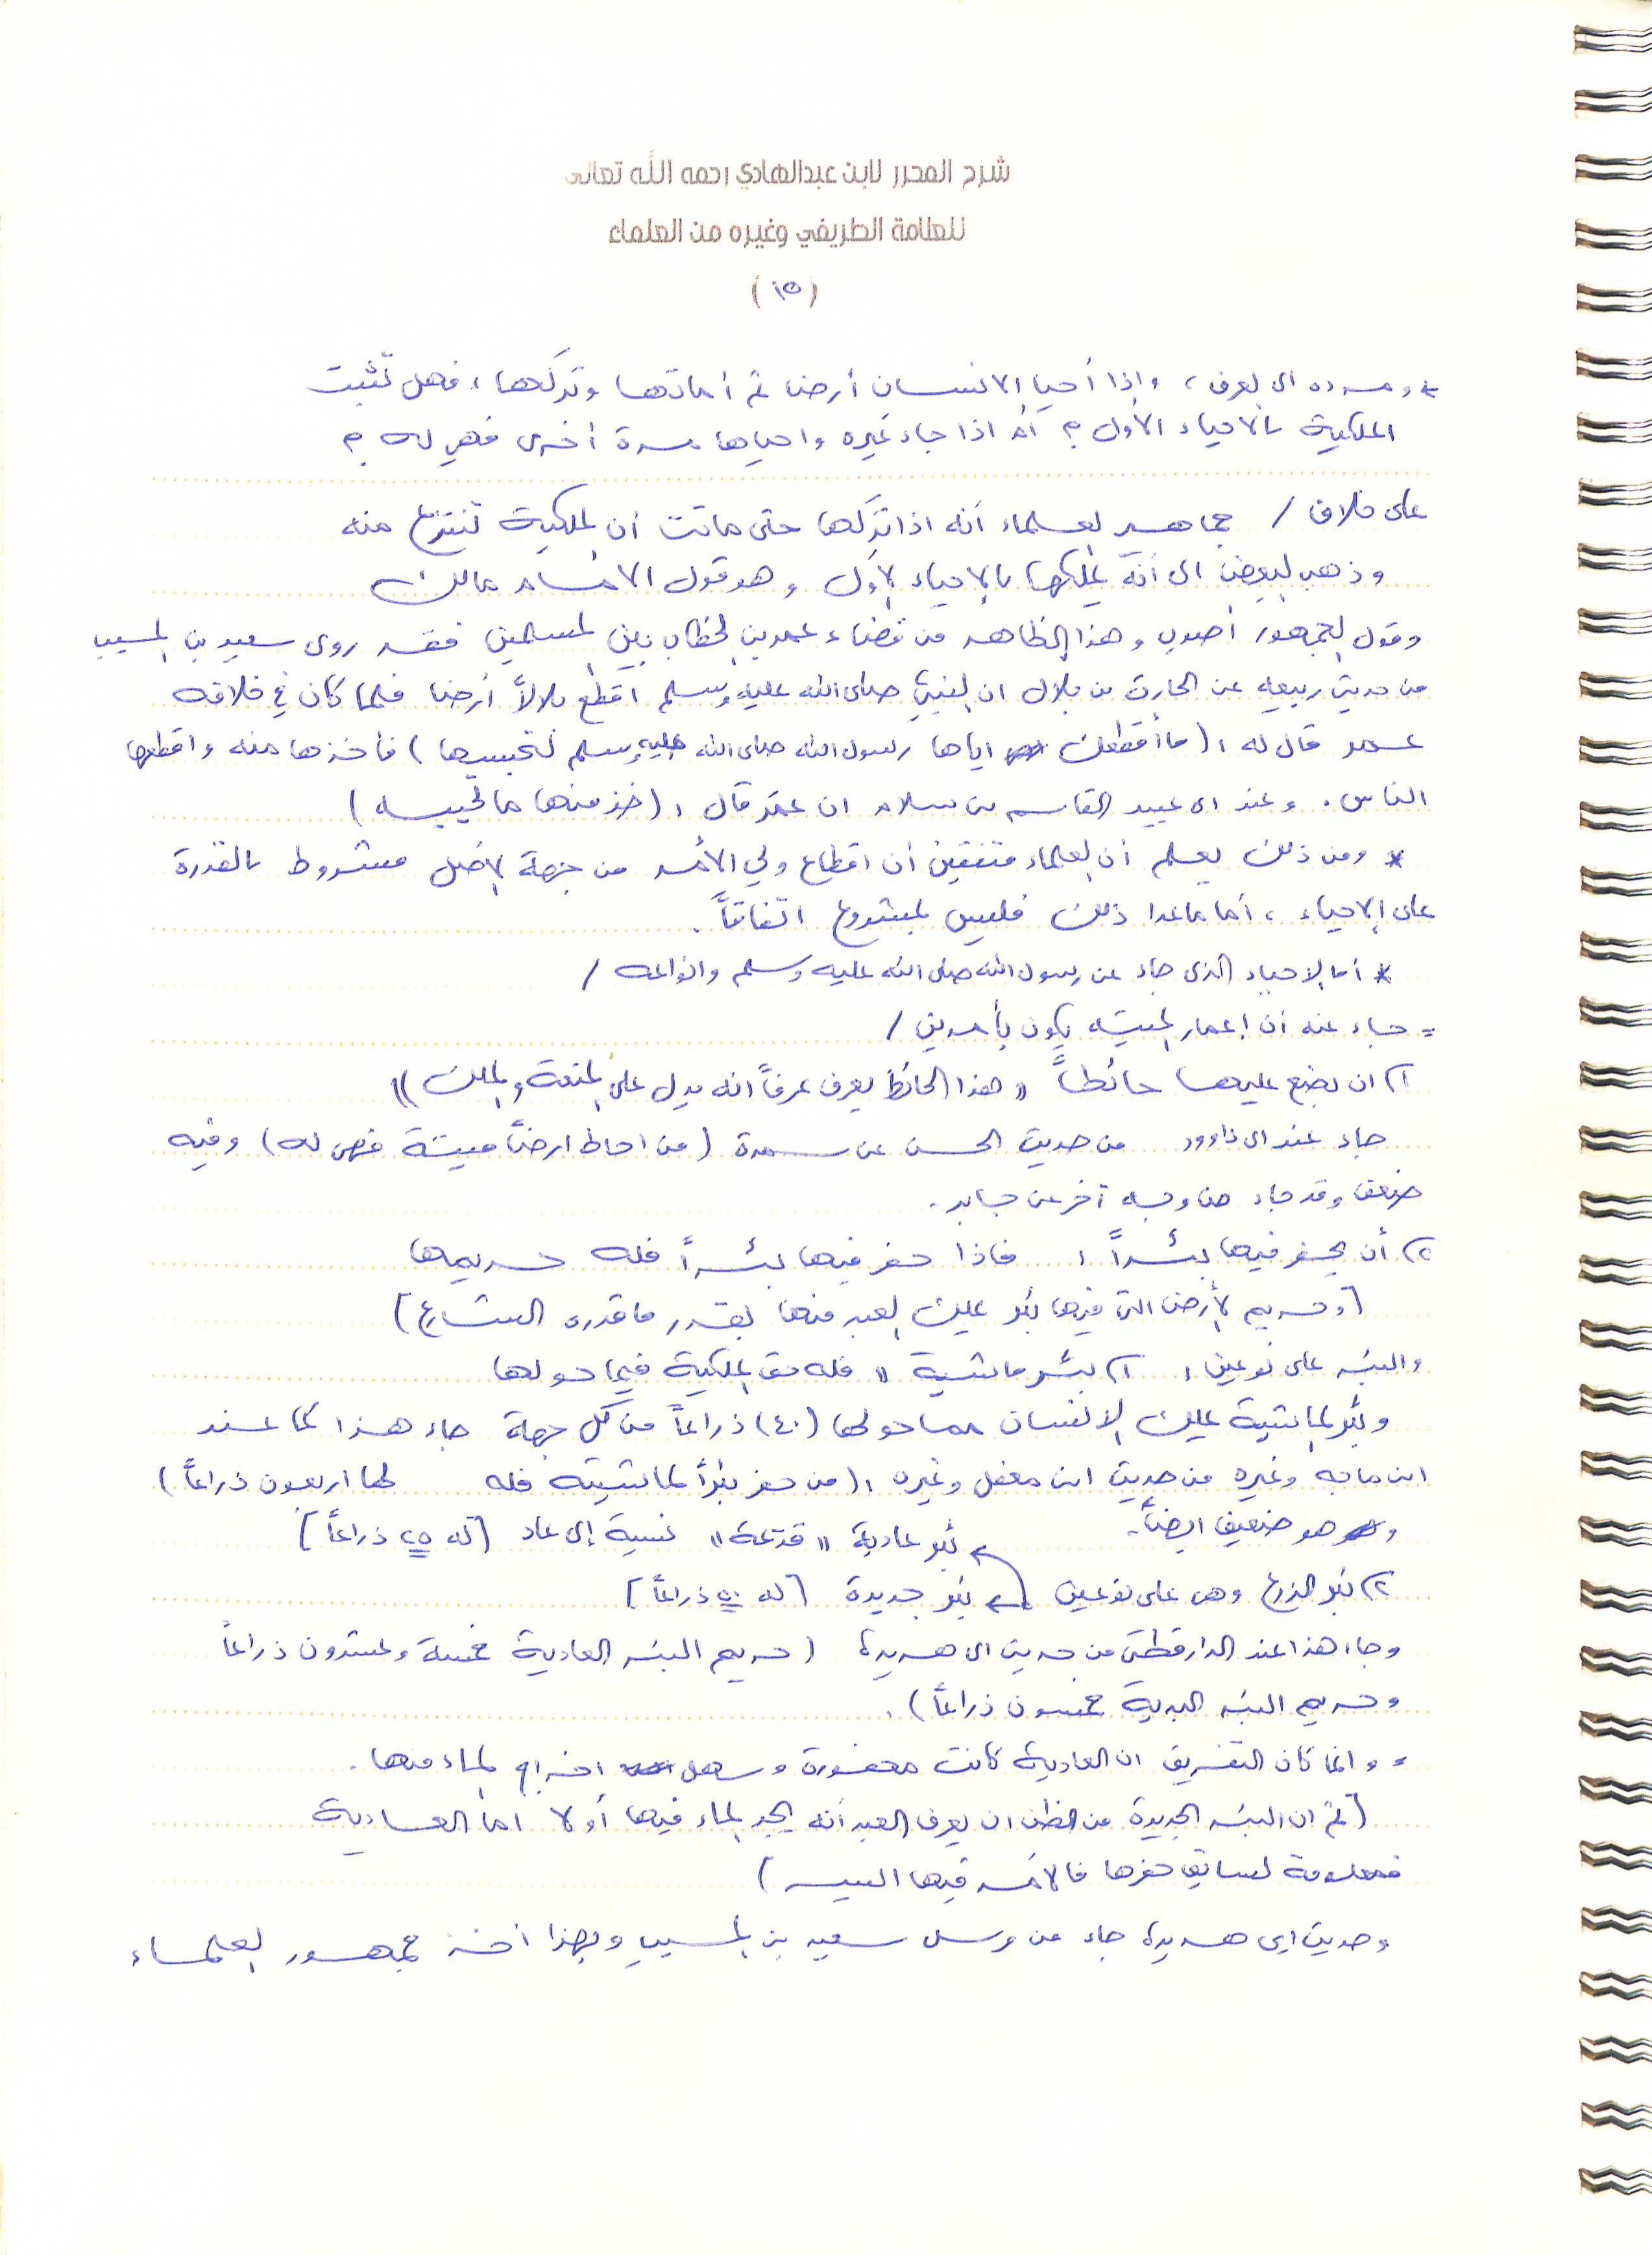 شرح المحرر لابن عبدالهادي رحمه الله تعالى
للعلامة الطريفي وغيره من العلماء
(١٥)
* ومرده الى العرف ، واذا أحيا الانسان أرضا ثم أماتها وتركها ، فهل تثبت
الملكية بالاحياء الأول ؟ أم اذا جاء غيره واحياها مرة أخرى فهي له ؟
على خلاف / جماهير العلماء أنه اذا تركها حتى ماتت أن الملكية تنتزع منه
وذهب البعض الى أنه يملكها بالاحياء الأول وهو قول الامام مالك
وقول الجمهور أصوب وهذا الظاهر من قضاء عمر بن الخطاب بين المسلمين فقد روى سعيد بن المسيب
من حديث ربيعه عن الحارث بن بلال ان النبي صلى الله عليه وسلم اقطع بلالاً أرضا فلما كان في خلافه
عمر قال له : (ما أقطعك اياها رسول الله صلى الله عليه وسلم لتحبسها) فأخذها منه واقطعها
الناس . وعند ابي عبيد القاسم بن سلام ان عمر قال : (خذ منها ما تحييه)
* ومن ذلك يعلم أن العلماء متفقين أن اقطاع ولي الأمر من جهة الاصل مشروط بالقدرة
على الاحياء ، أما ماعدا ذلك فليس بمشروع اتفاقاً .
* أما الاحياء الذي جاء عن رسول الله صلى الله عليه وسلم وانواعه /
= جاء عنه أن اعمار الميته يكون بأمرين /
١) ان يضع عليها حائطاً " هذا الحائط يعرف عرفاً انه يدل على المنعة والملك "
جاء عند ابي داوود من حديث الحسن عن سمرة (من احاط ارضاً ميتة فهي له) وفيه
ضعف وقد جاء من وجه آخر عن جابر .
٢) أن يحفر فيها بئراً : فاذا حفر فيها بئراً فله حريمها
[وحريم الأرض التي فيها بئر يملك العبد منها بقدر ما قدره الشارع]
والبئر على نوعين : ١) بئر ماشية " فله حق الملكية فيما حولها
وبئر الماشية يملك الانسان مما حولها (٤٠) ذراعاً من كل جهة جاء هذا كما عند
ابن ماجه وغيره من حديث ابن مغفل وغيره : (من حفر بئراً لماشيته فله لها اربعون ذراعاً)
وهو ضعيف ايضاً .
بئر عادية " قديمة " نسبة إلى عاد [له ٢٥ ذراعاً]
٢) بئر الزرع وهي على نوعين
بئر جديدة [له ٥٠ ذراعاً]
وجاء هذا عند الدارقطني من حديث ابي هريرة (حريم البئر العادية خمسة وعشرون ذراعاً
وحريم البئر البدية خمسون ذراعاً) .
، وانما كان التفريق ان العادية كانت محفورة وسهل اخراج الماء منها .
[ثم ان البئر الجديدة من الظن ان يعرف العبد أنه يجد الماء فيها أو لا اما العادية
فمعلومة لسابق حفرها فالأمر فيها اليسر]
وحديث ابي هريرة جاء من مرسل سعيد بن المسيب وبهذا أخذ جمهور العلماء